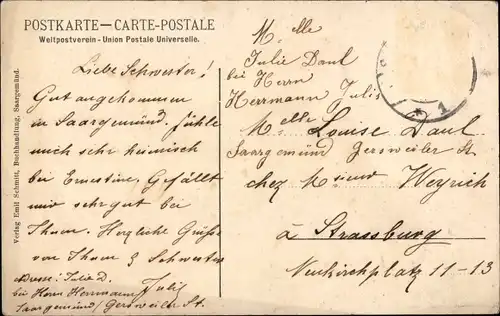 POSTKARTE — CARTE-POSTALE
Weltpostverein - Union Postale Universelle.
Verlag Emil Schmitt, Buchhandlung, Saargemünd.
Liebe Schwester!
Gut angekommen
in Saargemünd, fühle
mich sehr heimisch
bei Ernestine, Gefällt
mir sehr gut bei
Ihnen. Herzliche Grüße
von Ihnen & Schwester
Julie
Adresse: Julie D.
bei Herrn Hermann
Saargemünd / Gersweiler St.
M.elle
Julie Daul
bei Herrn
Herrmann Julis
Saargemünd Gersweiler St.
Melle Louise Daul
chez Weyrich
à Strassburg
Neukirchplatz 11-13